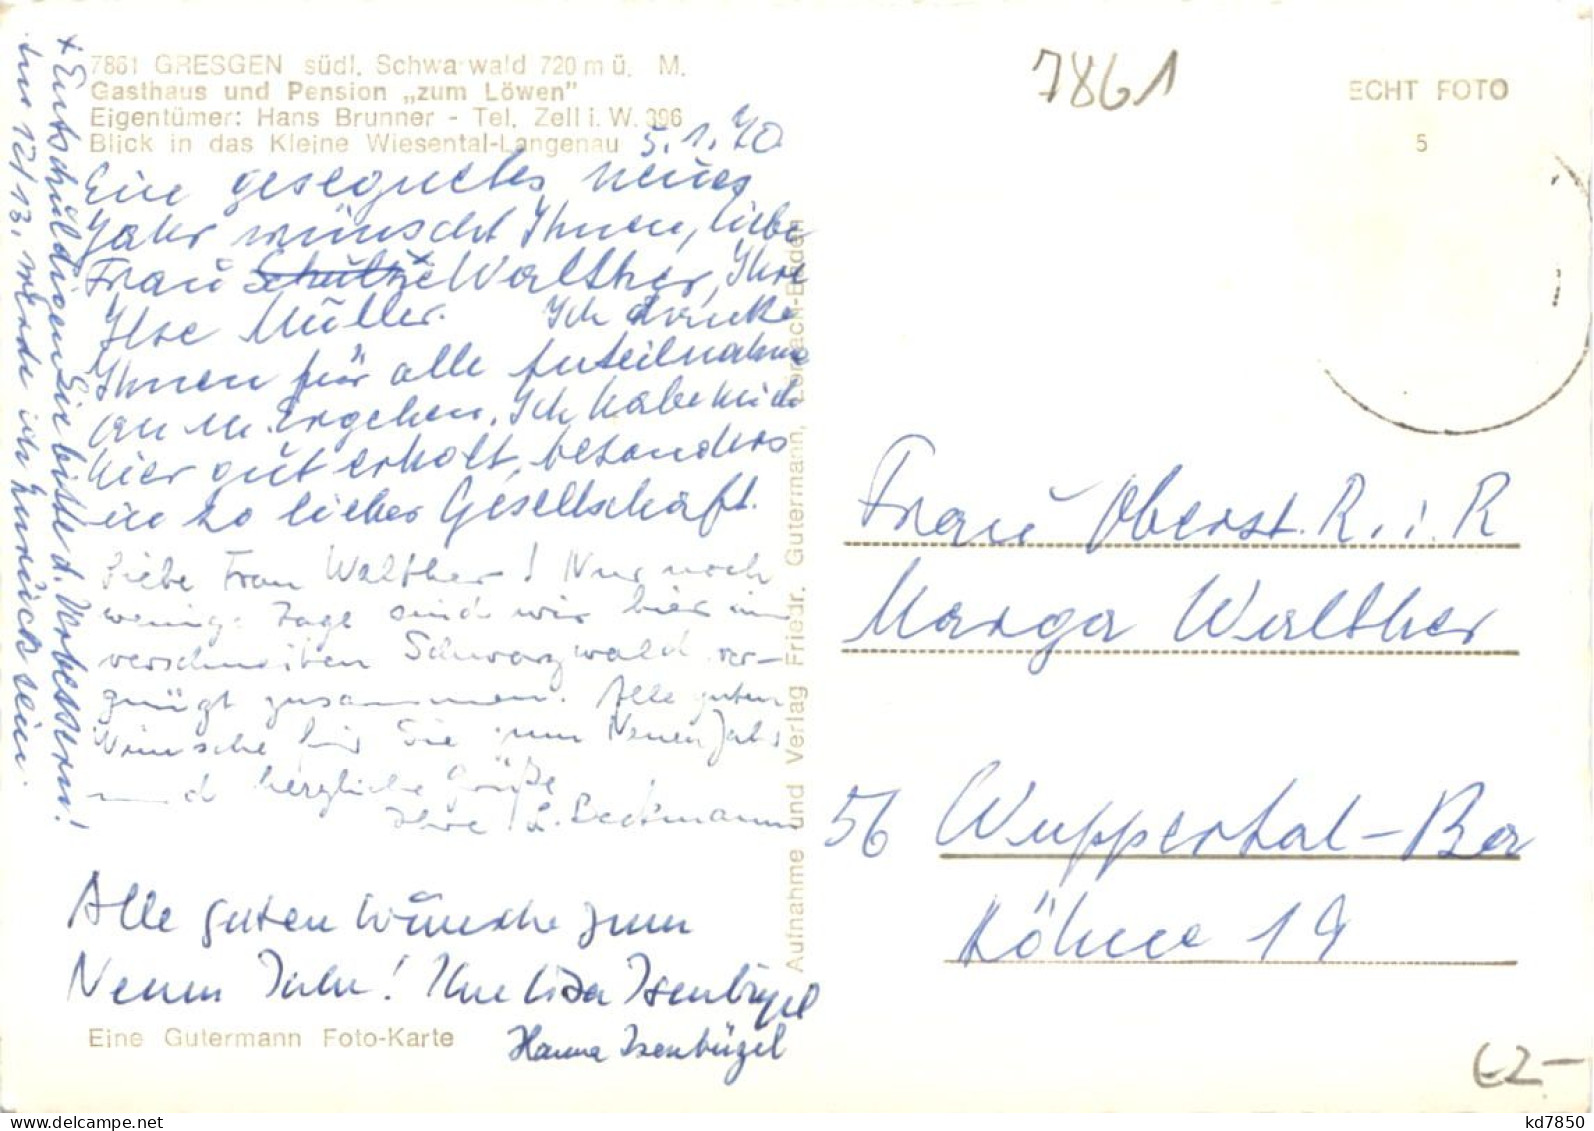 7861 GRESGEN südl. Schwarzwald 720 m ü. M.
Gasthaus und Pension „zum Löwen”
Eigentümer: Hans Brunner - Tel. Zell i. W. 396
Blick in das Kleine Wiesental-Langenau
5.1.70
Ein gesegnetes neues
Jahr wünscht Ihnen, liebe
Frau Schultze x Walther, Ihre
Ilse Müller. Ich danke
Ihnen für alle Anteilnahme
an m. Ergehen. Ich habe mich
hier gut erholt, besonders
in so lieber Gesellschaft.
Liebe Frau Walther! Nur noch
wenige Tage sind wir hier im
verschneiten Schwarzwald ver-
gnügt zusammen. Alle guten
Wünsche für Sie zum Neuen Jahr
und herzliche Grüße
Ihre L. Beckmann
Alle guten Wünsche zum
Neuen Jahr! Ihre Lisa Isenbügel
Hanna Isenbügel
Eine Gutermann Foto-Karte
x Entschuldigen Sie bitte d. Verbessern!
12/13. werde ich zurück sein.
Aufnahme und Verlag Friedr. Gutermann, Lörrach-Baden
7861
ECHT FOTO
5
Frau Oberst. R. i. R
Marga Walther
56 Wuppertal-Ba
Köhne 19
€2-
kd7850